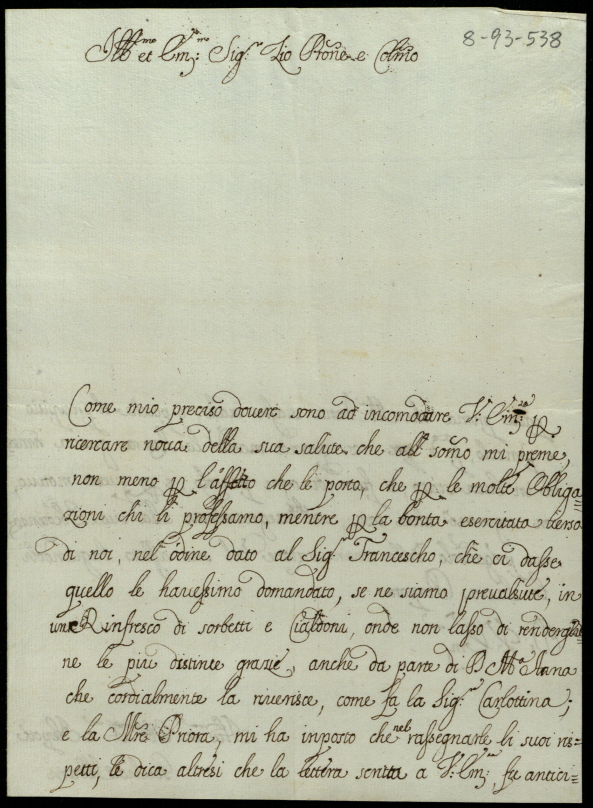 8-93-538
Ill.mo et Em: Sig.r Zio Prõne e Colmo
Come mio preciso dovere sono ad incomodare V: Em:za p
ricercare nova della sua salute che all' somo mi preme,
non meno p l'affetto che le porto, che p le molte Obliga=
zioni chi li professamo, mentre p la bonta esercitata verso
di noi, nel' odine dato al Sig.r Francescho, che ci dasse
quello le havessimo domandato, se ne siamo prevalsute, in
un Rinfresco di sorbetti e Cialdoni, onde non lasso di rendergli
ne le più distinte grazie, anche da parte di D M.a Anna
che cordialmente la riverisce, come fa la Sig.ra Carlottina;
e la M.re Priora, mi ha inposto che nel rassegnarle li suoi ris=
petti, le dica altresi che la lettera scritta a V: Em:za fu antici=